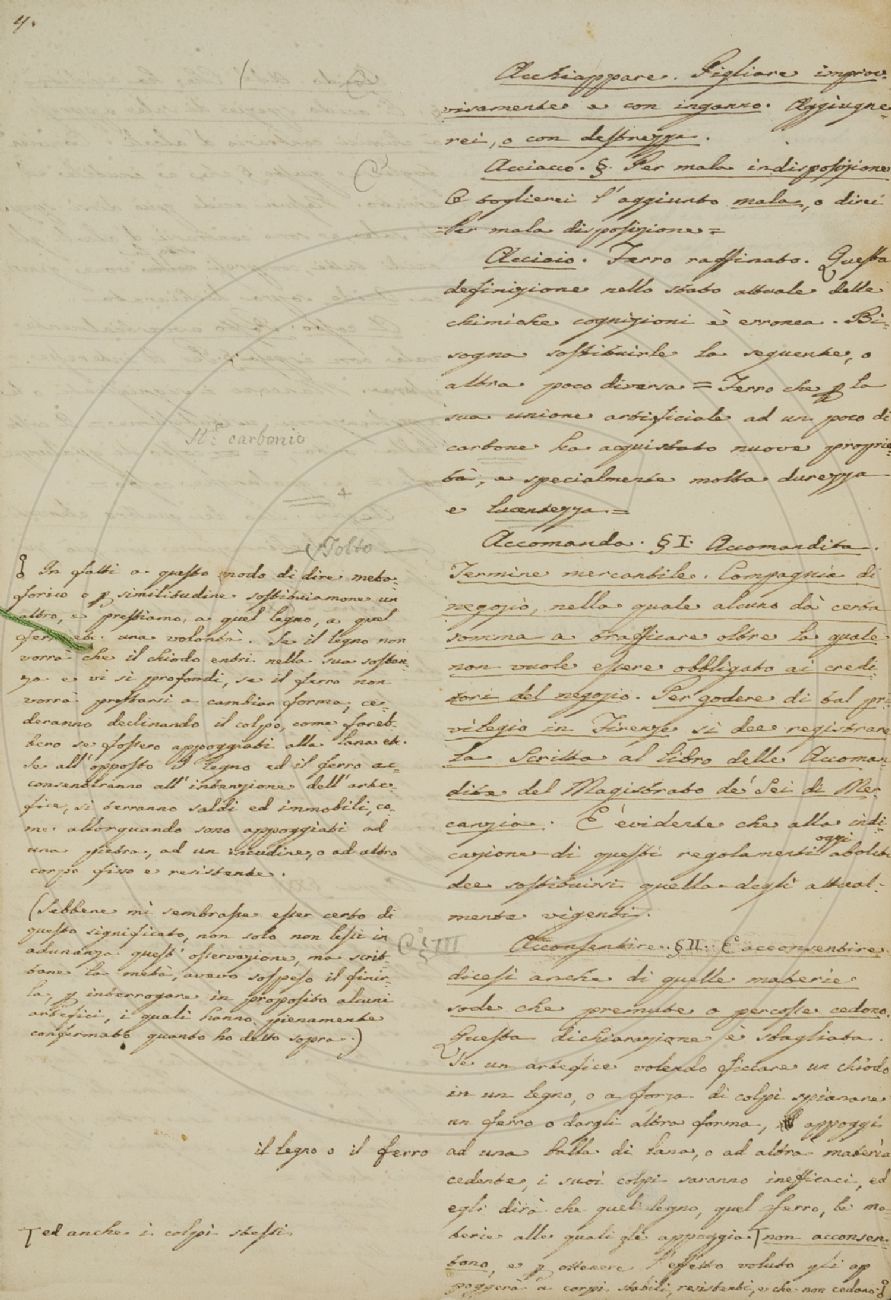 4.
Acchiappare. Pigliare improv-
visamente e con inganno. Aggiugne-
rei, o con destrezza.
Acciacco. §. Per mala indisposizione
E toglierei l'aggiunto mala, o direi
Per mala disposizione =
Acciaio. Ferro raffinato. Questa
definizione nello stato attuale delle
chimiche cognizioni è erronea. Bi-
sogna sostituirle la seguente, o
altra poco diversa = Ferro che p la
sua unione artificiale ad un poco di
carbone ha acquistato nuove proprie-
tà, e specialmente molta durezza
e lucentezza =
Accomanda. § I. Accomandita.
Termine mercantile. Compagnia di
negozio, nella quale alcuno dà certa
somma a trafficare oltre la quale
non vuole essere obbligato ai credi-
tori del negozio. Per godere di tal pri-
vilegio in Firenze si dee registrare
la Scritta al libro delle Accoman-
dite del Magistrato de' Sei di Mer-
canzia. E' evidente che alla indi-
cazione di questi regolamenti oggi aboliti
dee sostituirsi quella degli attual-
mente vigenti.
Acconsentire. § II. E acconsentire
dicesi anche di quelle materie
sode che premute o percosse cedono.
Questa dichiarazione è sbagliata.
Se un artefice volendo ficcare un chiodo
in un legno, o a forza di colpi spianare
un ferro o dargli altra forma, appoggi
ad una balla di lana, o ad altra materia
cedente, i suoi colpi saranno inefficaci, ed
egli dirà che quel legno, quel ferro, le ma-
terie alle quali gli appoggia non acconsen-
tono, e p ottenere l'effetto voluto gli ap
poggerà a corpi stabili, resistenti, e che non cedono.
carbonio
Tolto
In fatti a questo modo di dire meta-
forico e p similitudine sostituiamone un
altro, e prestiamo, a quel legno, a quel
ferro etc. una volontà. Se il legno non
vorrà che il chiodo entri nella sua sostan-
za e vi si profondi, se il ferro non
vorrà prestarsi a cambiar forma, ce-
deranno declinando il colpo, come fareb-
bero se fossero appoggiati alla lana etc.
Se all'opposto il legno ed il ferro ac-
consentiranno all'intenzione dell'arte-
fice, si terranno saldi ed immobili, co-
me allorquando sono appoggiati ad
una pietra, ad un incudine, o ad altro
corpo fisso e resistente.
(Sebbene mi sembrasse esser certo di
questo significato, non solo non lessi in
adunanza quest'osservazione, ma scrit-
tane la metà, avevo sospeso il finir-
la, p interrogare in proposito alcuni
artefici, i quali hanno pienamente
confermato quanto ho detto sopra.)
il legno o il ferro
ed anche i colpi stessi